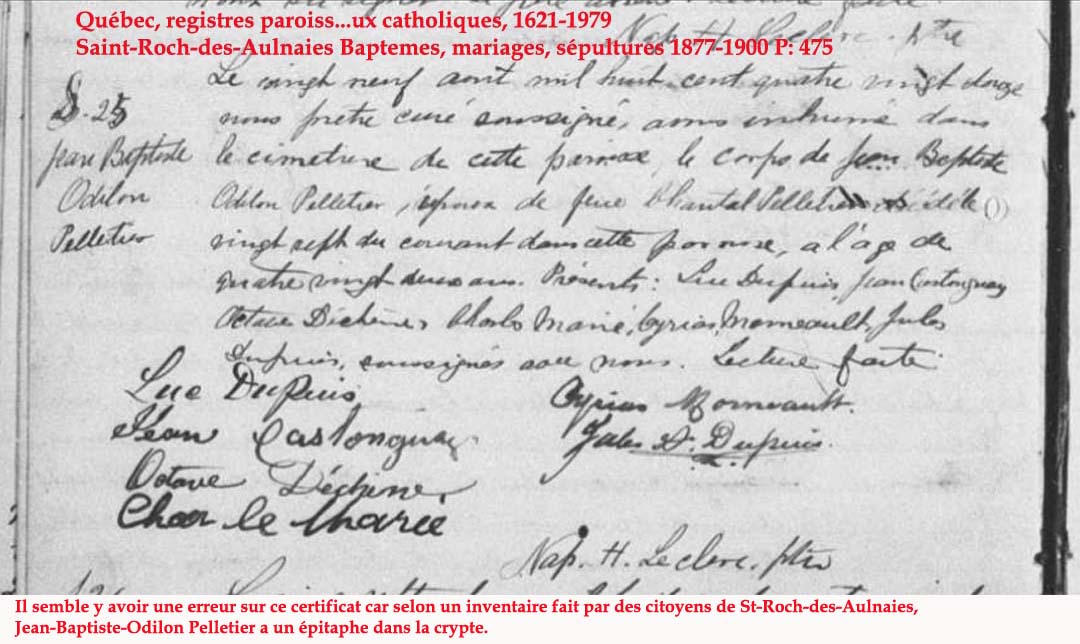 Québec, registres paroiss...ux catholiques, 1621-1979
Saint-Roch-des-Aulnaies Baptemes, mariages, sépultures 1877-1900 P: 475
Nap. H. Leclerc. ptre
Le vingt neuf aout mil huit cent quatre vingt douze
S. 25
nous prêtre curé soussigné, avons inhumé dans
Jean Baptiste
le cimetière de cette paroisse, le corps de Jean Baptiste
Odilon
Odilon Pelletier, époux de feue Chantal Pelletier décédé le
Pelletier
vingt sept du courant dans cette paroisse, a l'age de
quatre vingt deux ans. Présents: Luc Dupuis, Jean Castonguay
Octave Déchène, Charles Marié, Cyrias Morneault, Jules
Dupuis, soussignés avec nous. Lecture faite
Luc Dupuis
Cyrias Morneault.
Jean Castonguay
Jules A. Dupuis
Octave Déchène,
Char le Marié
Nap. H. Leclerc. ptre
Il semble y avoir une erreur sur ce certificat car selon un inventaire fait par des citoyens de St-Roch-des-Aulnaies,
Jean-Baptiste-Odilon Pelletier a un épitaphe dans la crypte.